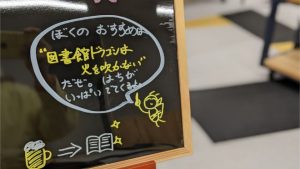 ぼくの おすすめは
"図書館ドラゴンは
火を吹かない"
だぜ。はちが
いっぱいでてくるぜ